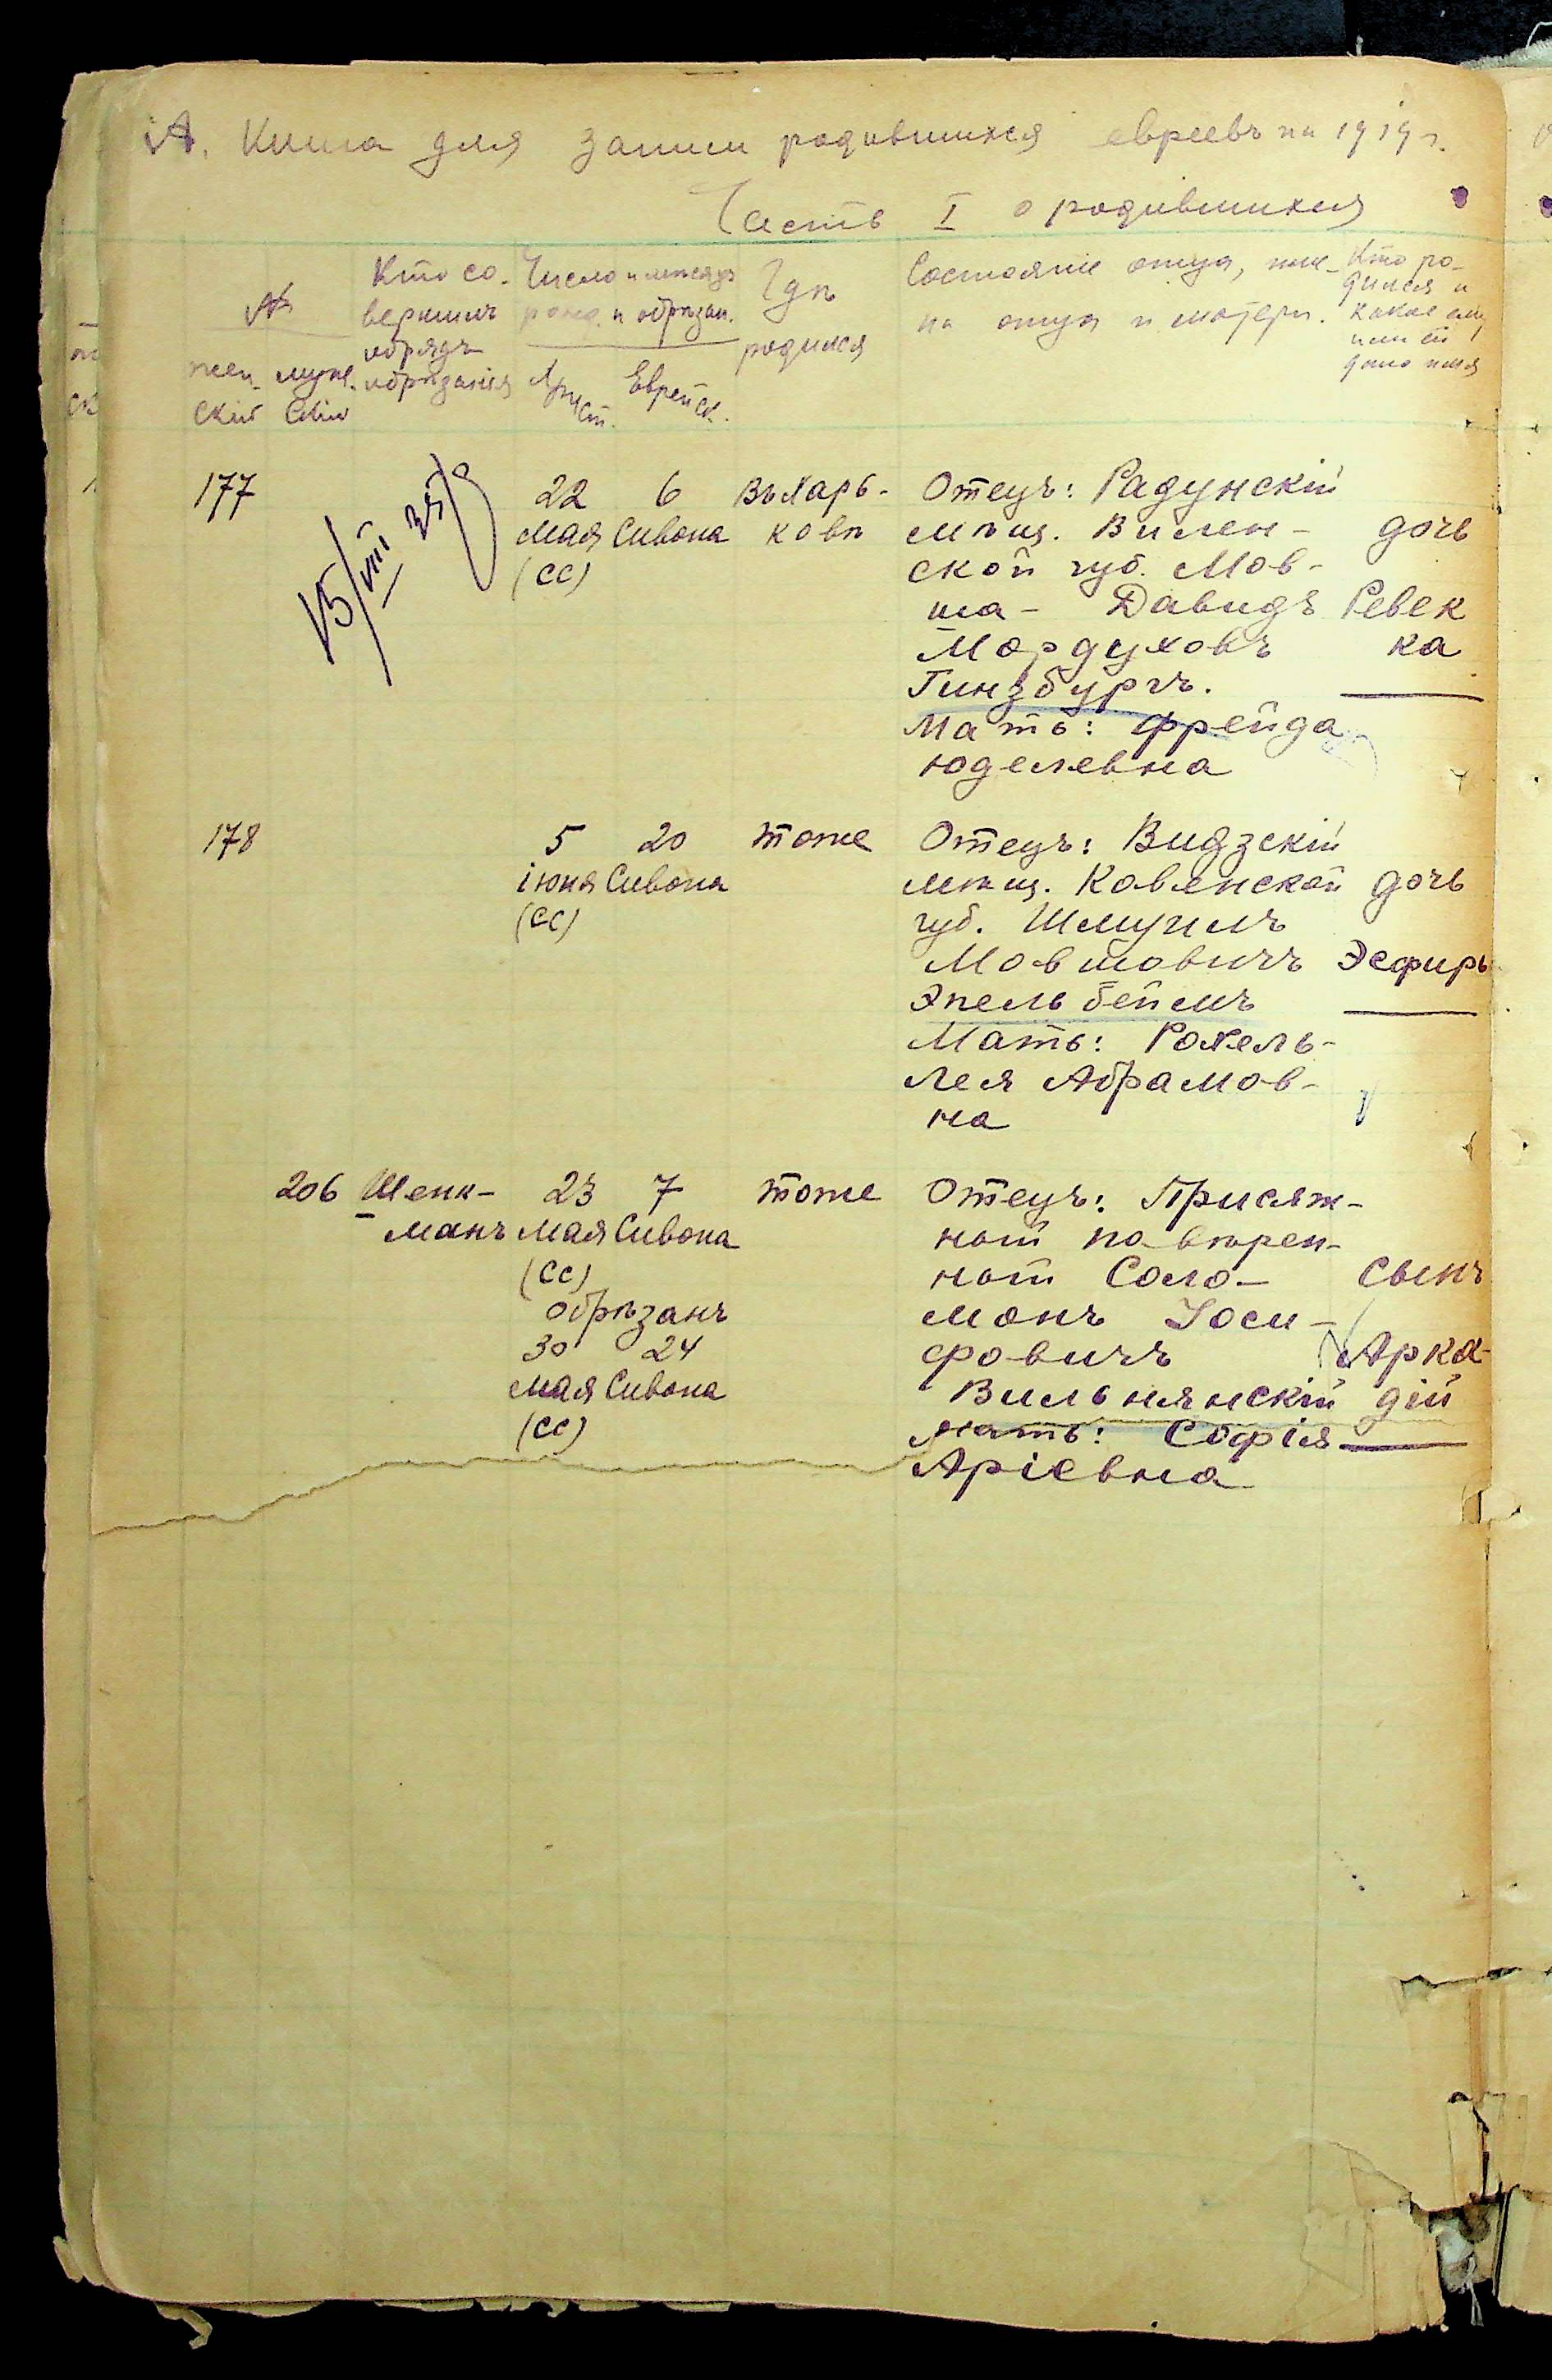 А. Книга для записи родившихся евреевъ на 1919 г.
Часть I о родившихся
№
жен- муже.
скій скій
Кто со-
вершилъ
обрядъ
обрѣзанія
Число и мѣсяцъ
рожд. и обрѣзан.
Христ. Еврейск.
Гдѣ
родился
Состояніе отца, име-
на отца и матери.
Кто ро-
дился и
какое ему
или ей
дано имя
177
15/VIII 35
22 6
Мая Сивона
(СС)
Въ Харь-
ковѣ
Отецъ: Радунскій
мѣщ. Вилен-
ской губ. Мов-
ша - Давидъ
Мордуховъ
Гинзбургъ.
Мать: Фрейда
Юделевна
дочь
Ревек
ка
178
5 20
іюня Сивона
(СС)
тоже
Отецъ: Видзскій
мѣщ. Ковенской
губ. Шмуилъ
Мовшовичъ
Эпельбеймъ
Мать: Рохель-
Лея Абрамов-
на
дочь
Эсфирь
206
Шенк-
манъ
23 7
Мая Сивона
(СС)
обрѣзанъ
30 24
мая Сивона
(СС)
тоже
Отецъ: Присяж-
ный повѣрен-
ный Соло-
монъ Іоси-
фовичъ
Вильнянскій
Мать: Софія
Аріевна
Сынъ
Арка-
дій